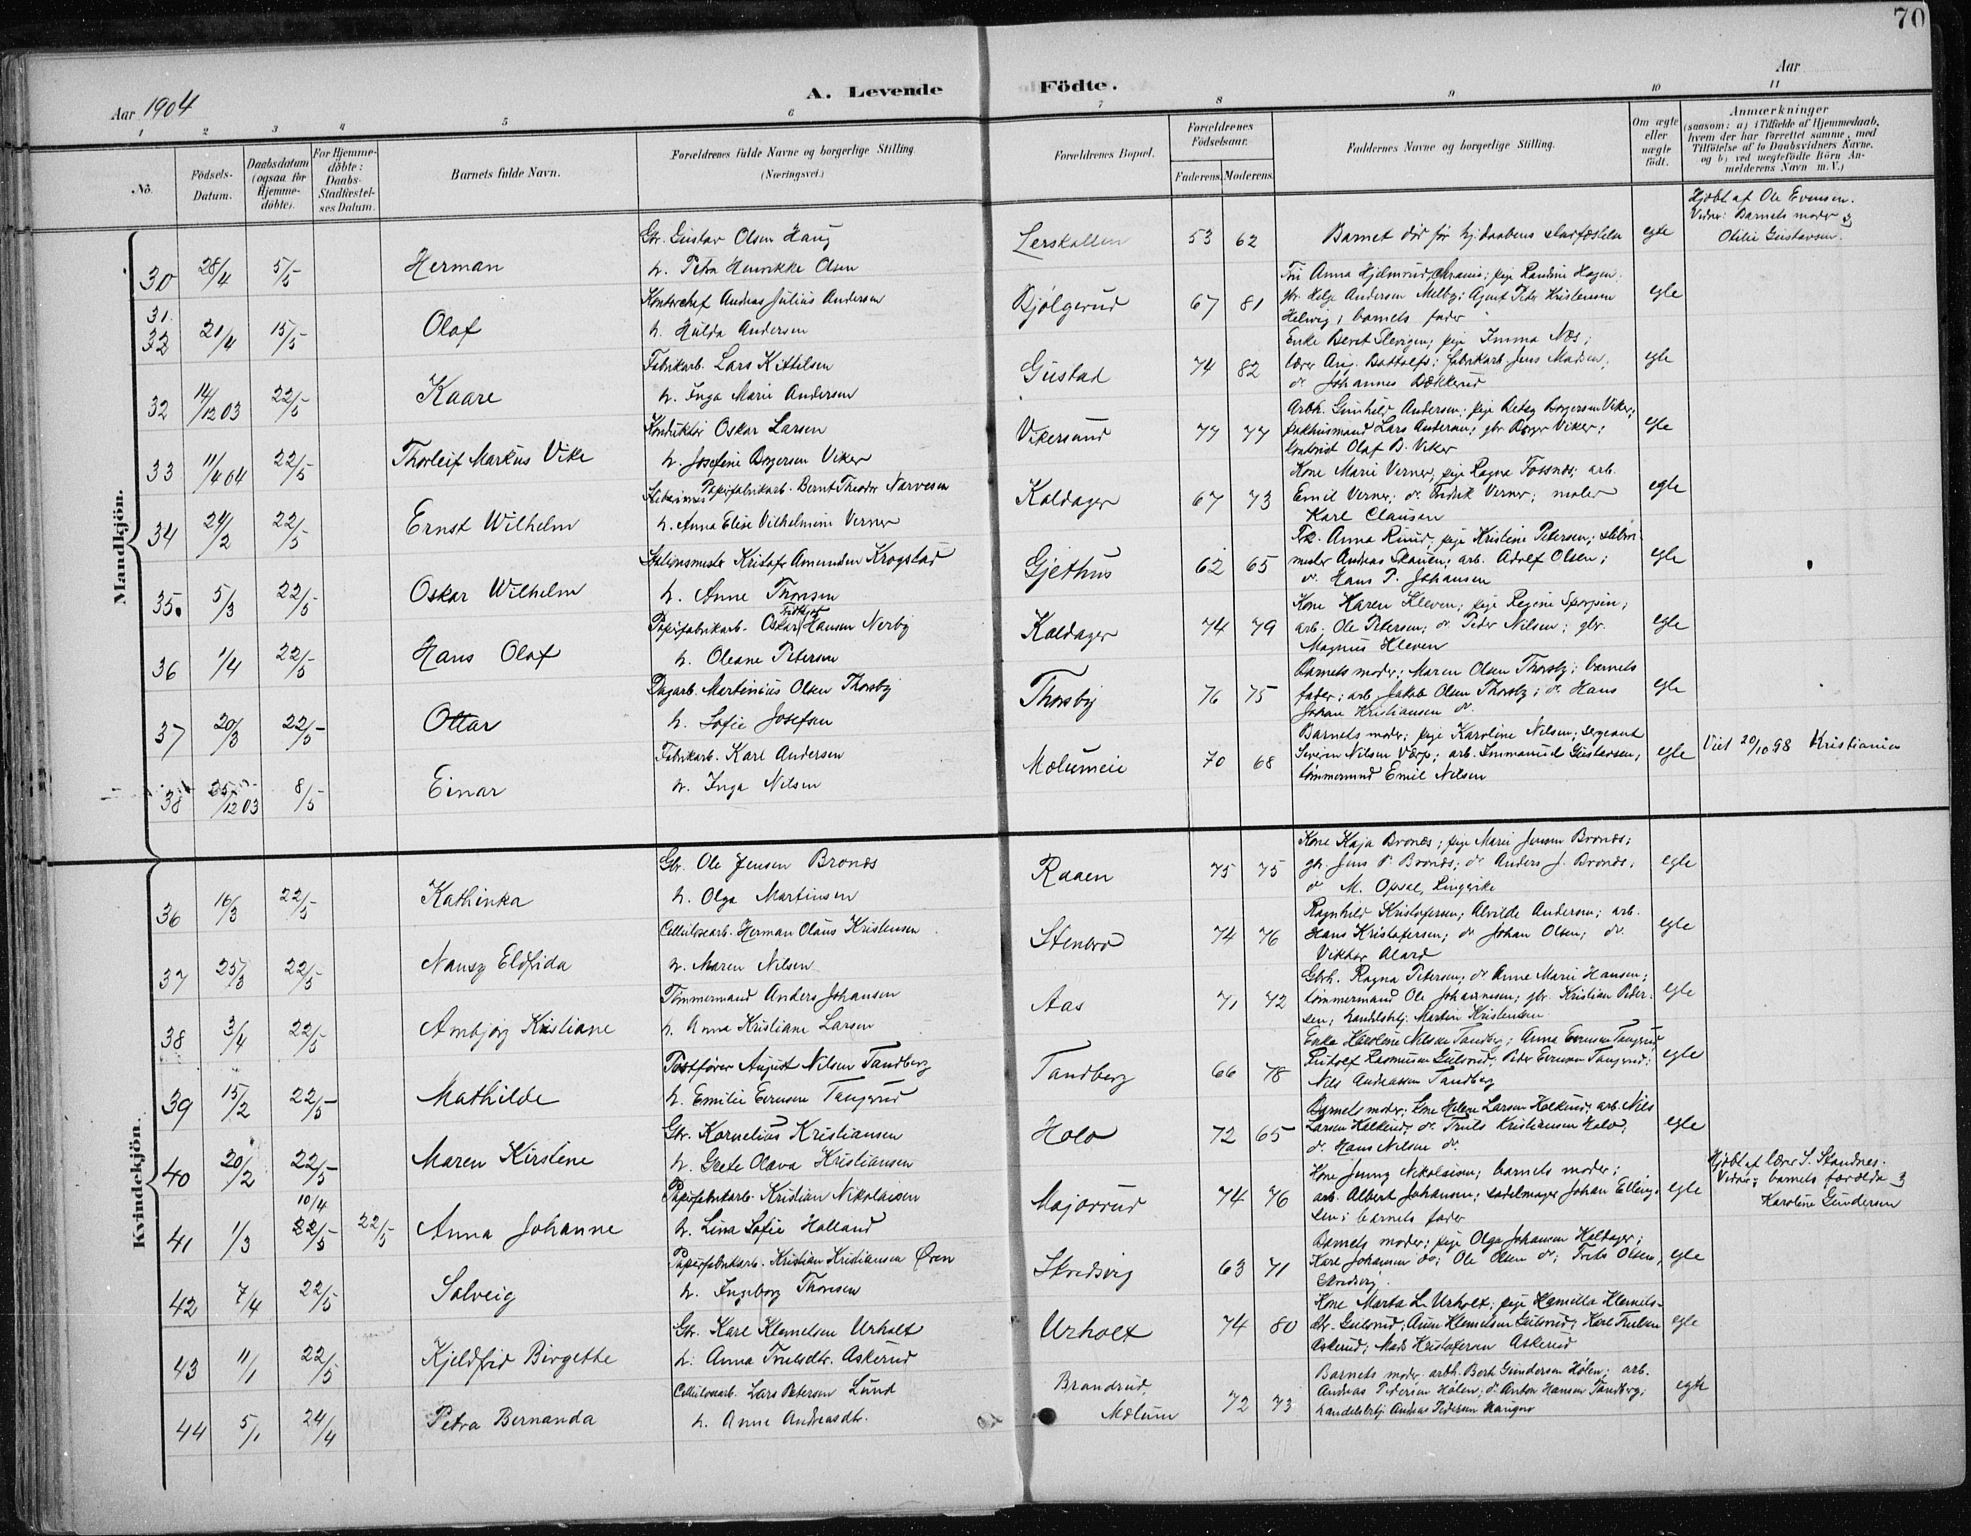 70
Aar 1904
A. Levende Födte.
Aar
1 2 3 4 5 6 7 8 9 10 11
No.
Födsels-Datum.
Daabsdatum (ogsaa for Hjemme-döbte).
For Hjemme-döbte: Daabs-Stadfæstel-ses Datum.
Barnets fulde Navn.
Forældrenes fulde Navne og borgerlige Stilling.
(Næringsvei.)
Forældrenes Bopæl.
Forældrenes Födselsaar.
Faderens. Moderens.
Faddernes Navne og borgerlige Stilling.
Om ægte eller uægte födt.
Anmærkninger
(saasom: a) i Tilfælde af Hjemmedaab, hvem der har forrettet samme, med Tilföielse af to Daabsvidners Navne, og b) ved uægtefödte Börn Anmelderens Navn m. V.)
Mandkjön.
30 28/4 5/5 Herman
Gbr. Gustav Olsen Haug
h. Petra Henrikke Olsen
Lerskallen 53 62
Barnet död før hj.daabens stadfæstelse
egte
Hjdøbt af Ole Evensen.
Vidner: Barnets moder og
Otilie Gustavsen.
31. 32 21/4 15/5 Olaf
Kontorchef Andreas Julius Andersen
h. Hulda Andersen
Bjølgerud 67 81
gbr. Helge Andersen Melby; Agent Peder Kristensen
Helwig; barnets fader
egte
32 14/12 03 22/5 Kaare
Fabrikarb. Lars Kittilsen
h. Inga Marie Andersen
Gustad 74 82
fabrikarb. Jens Madsen;
do Johannes Bækkerud
egte
33 11/4 04 22/5 Thorleif Markus Vike
Konduktör Oskar Larsen
h. Josefine Borgersen Viker
Vikersund 77 77
Arbk. Gunhild Andersen; pige Betzy Borgersen Viker;
pakhusmand Lars Andersen; gbr Borger Viker;
Kontorist Olaf B. Viker
egte
34 24/2 22/5 Ernst Wilhelm
Papirfabrikarb. Bernt Theodor Narvesen
h. Anna Elise Vilhelmine Verner
Kaldager 67 73
Kone Marie Verner, pige Ragna Fossnæs; arb.
Emil Verner; do Fredrik Verner; maler
Karl Clausen
egte
35. 5/3 22/5 Oskar Wilhelm
Stationsmester Kristofer Amundsen Krogstad
h. Anne Thoresen
Gjethus 62 65
Frk. Anna Ruud; pige Kristine Petersen; slibri-
mester Andreas Skauen; arb. Adolf Olsen;
do. Hans P. Johansen
egte
36 1/4 22/5 Hans Olaf
Papirfabrikarb. Oskar Fridtjof Hansen Nerby
h. Oleane Petersen
Kaldager 74 79
Kone Karen Kleven; pige Regine
arb. Ole Petersen; do Peder Nilsen; gbr.
Magnus Kleven
egte
37 20/3 22/5 Ottar
Dagarb. Martinius Olsen Thorsby
h. Sofie Josefsen
Thorsby 76 75
Barnets moder; Maren Olsen Thorsby; barnets
fader; arb. Jakob Olsen Thorsby; do Hans
Johan Kristiansen do.
egte
38 25/12 03 8/5 Einar
Fabrikarb. Karl Andersen
h. Inga Nilsen
Mælumeie 70 68
Barnets moder; pige Karoline Nilsen; sergeant
Severin Nilsen Værp; arb. Immanuel Gustavsen,
tømmermand Emil Nilsen
egte
Viet 20/10 98 Kristiania
Kvindekjön.
36 16/3 22/5 Kathinka
Gbr. Ole Jensen Bronæs
h. Olga Martinsen
Raaen 75 75
Kone Kaja Bronæs; pige Marie Jensen Bronæs;
gbr. Jens P. Bronæs; do Anders J. Bronæs;
do M. Opsal, Ringerike
egte
37 25/3 22/5 Nansy Eldfrida
Cellulosearb. Herman Olaus Kristensen
h. Maren Nilsen
Stenbro 74 76
Ragnhild Kristofersen; Alvilde Andersen; arb.
Hans Kristofersen; do Johan Olsen; do.
Viktor Alard
egte
38 3/4 22/5 Ambjørg Kristiane
Tömmermand Anders Johansen
h. Anna Kristiane Larsen
Aas 71 72
Gbrk. Ragna Petersen; do Anne Marie Hansen;
tømmermand Ole Johannesen; gbr. Kristian Peder-
sen; handelsbetj. Martin Kristensen
egte
39 15/2 22/5 Mathilde
Postfører August Nilsen Tandberg
h. Emilie Evensen Tangerud
Tandberg 66 78
Enke Karoline Nilsen Tandberg; Anne Evensen Tangerud
Rudolf Rasmussen Gulsrud; Peder Evensen Tangerud;
Nils Andreassen Tandberg
egte
40 20/2 22/5 Maren Kirstene
Gbr. Kornelius Kristiansen
h. Grete Olava Kristiansen
Holo 72 65
Barnets moder; Kone Helene Larsen Kolkind; arb. Nils
Larsen Kolkind; do Truls Kristiansen Holo;
do Hans Nilsen do
egte
41 1/3 10/4 22/5 22/5 Anna Johanne
Papirfabrikarb. Kristian Nikolaisen
h. Lina Sofie Holland
Majorrud 74 76
Kone Jenny Nikolaisen; barnets moder;
arb. Albert Johansen; sadelmager Johan Elling-
sen; barnets fader
egte
Hjdøbt af lærer S. Standnes.
Vidner: barnets forældre og
Karoline Gundersen
42 7/4 22/5 Solveig
Papirfabrikarb. Kristian Kristiansen Øren
h. Ingeborg Thoresen
Skredsvig 63 71
Barnets moder; pige Olga Johansen Kaldager;
Karl Johansen do; Ole Olsen do; Frits Olsen,
Skredsvig.
egte
43 11/1 22/5 Kjeldfrid Birgette
Gbr. Karl Klemetsen Urholt
h. Anna Trulsdtr. Askerud
Urholt 74 80
Kone Marta L. Urholt; pige Hamilla Klemets-
dtr. Gulsrud; Arun Klemetsen Gulsrud; Karl Trulsen
Askerud; Mads Kristofersen Askerud
egte
44 5/1 24/4 Petra Bernanda
Cellulosearb. Lars Petersen Lund
h. Anne Andreasdtr.
Brandrud, Mælum 72 73
Barnets moder, arbk. Berte Gundersen Hølen; arb.
Andreas Pedersen Hølen; do Anton Hansen Tandberg;
handelsbetj Andreas Pedersen Haugner
egte